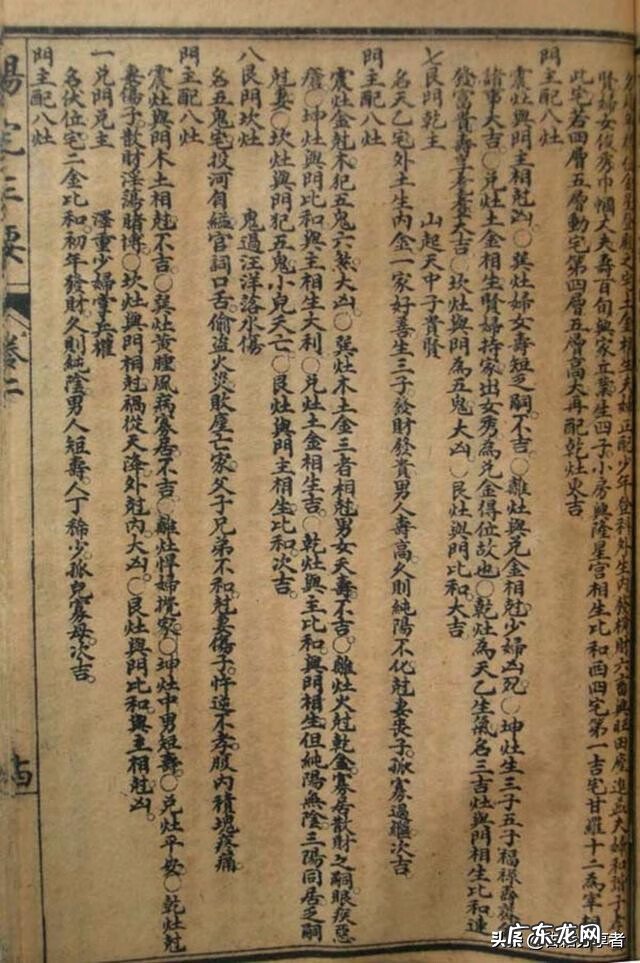 腎婦女俊秀巾幗丈夫壽百旬興家立業生四子小房興隆星宮相生比和西四宅第一吉宅甘羅十二為宰相
此宅若四層五層動宅第四層五層高大再配乾灶更吉
門主配八灶
震灶與門主相尅凶○巽灶婦女壽短乏嗣不吉○離灶與兌金相尅少婦凶死○坤灶生三子五子福祿壽
諸事大吉○兌灶土金相生賢婦持家出女秀為兌金得位故也○乾灶為天乙生氣名三吉灶與門相生比和連
發富貴壽大吉○坎灶與門為五鬼大凶○艮灶與門比和大吉
七艮門乾主 山起天中子貴賢
名天乙宅外土生內金一家好善生三子發財發貴男人壽高久則純陽不化尅妻喪子孤寡過繼次吉
門主配八灶
震灶金尅木犯五鬼六煞大凶○巽灶木土金三者相尅男女夭壽不吉○離灶火尅乾金寡居散財乏嗣眼疾惡
瘡○坤灶與門比和與主相生大利○兌灶土金相生吉○乾灶與主比和與門相生但純陽無陰三陽同居乏嗣
尅妻○坎灶與門犯五鬼小兒夭亡○艮灶與門主相生比和次吉
八艮門坎灶 鬼過汪洋落水傷
名五鬼宅投河自縊官詞口舌偷盜火災敗屋亡家父子兄弟不和尅妻傷子忤逆不孝股內積塊疼痛
門主配八灶
震灶與門木土相尅不吉○巽灶黃腫風病寡居不吉○離灶悍婦攪家○坤灶中男短壽○兌灶平安○乾灶尅
妻傷子散財淫蕩賭博○坎灶與門相尅禍從天降外尅內大凶○艮灶與門比和與主相尅凶
一兌門兌主 澤重少婦掌兵權
名伏位宅二金比和初年發財久則純陰男人短壽人丁稀少孤兒寡母次吉
門主配八灶
陽宅三要 卷二
頭条 @古籍分享者
广东龙网